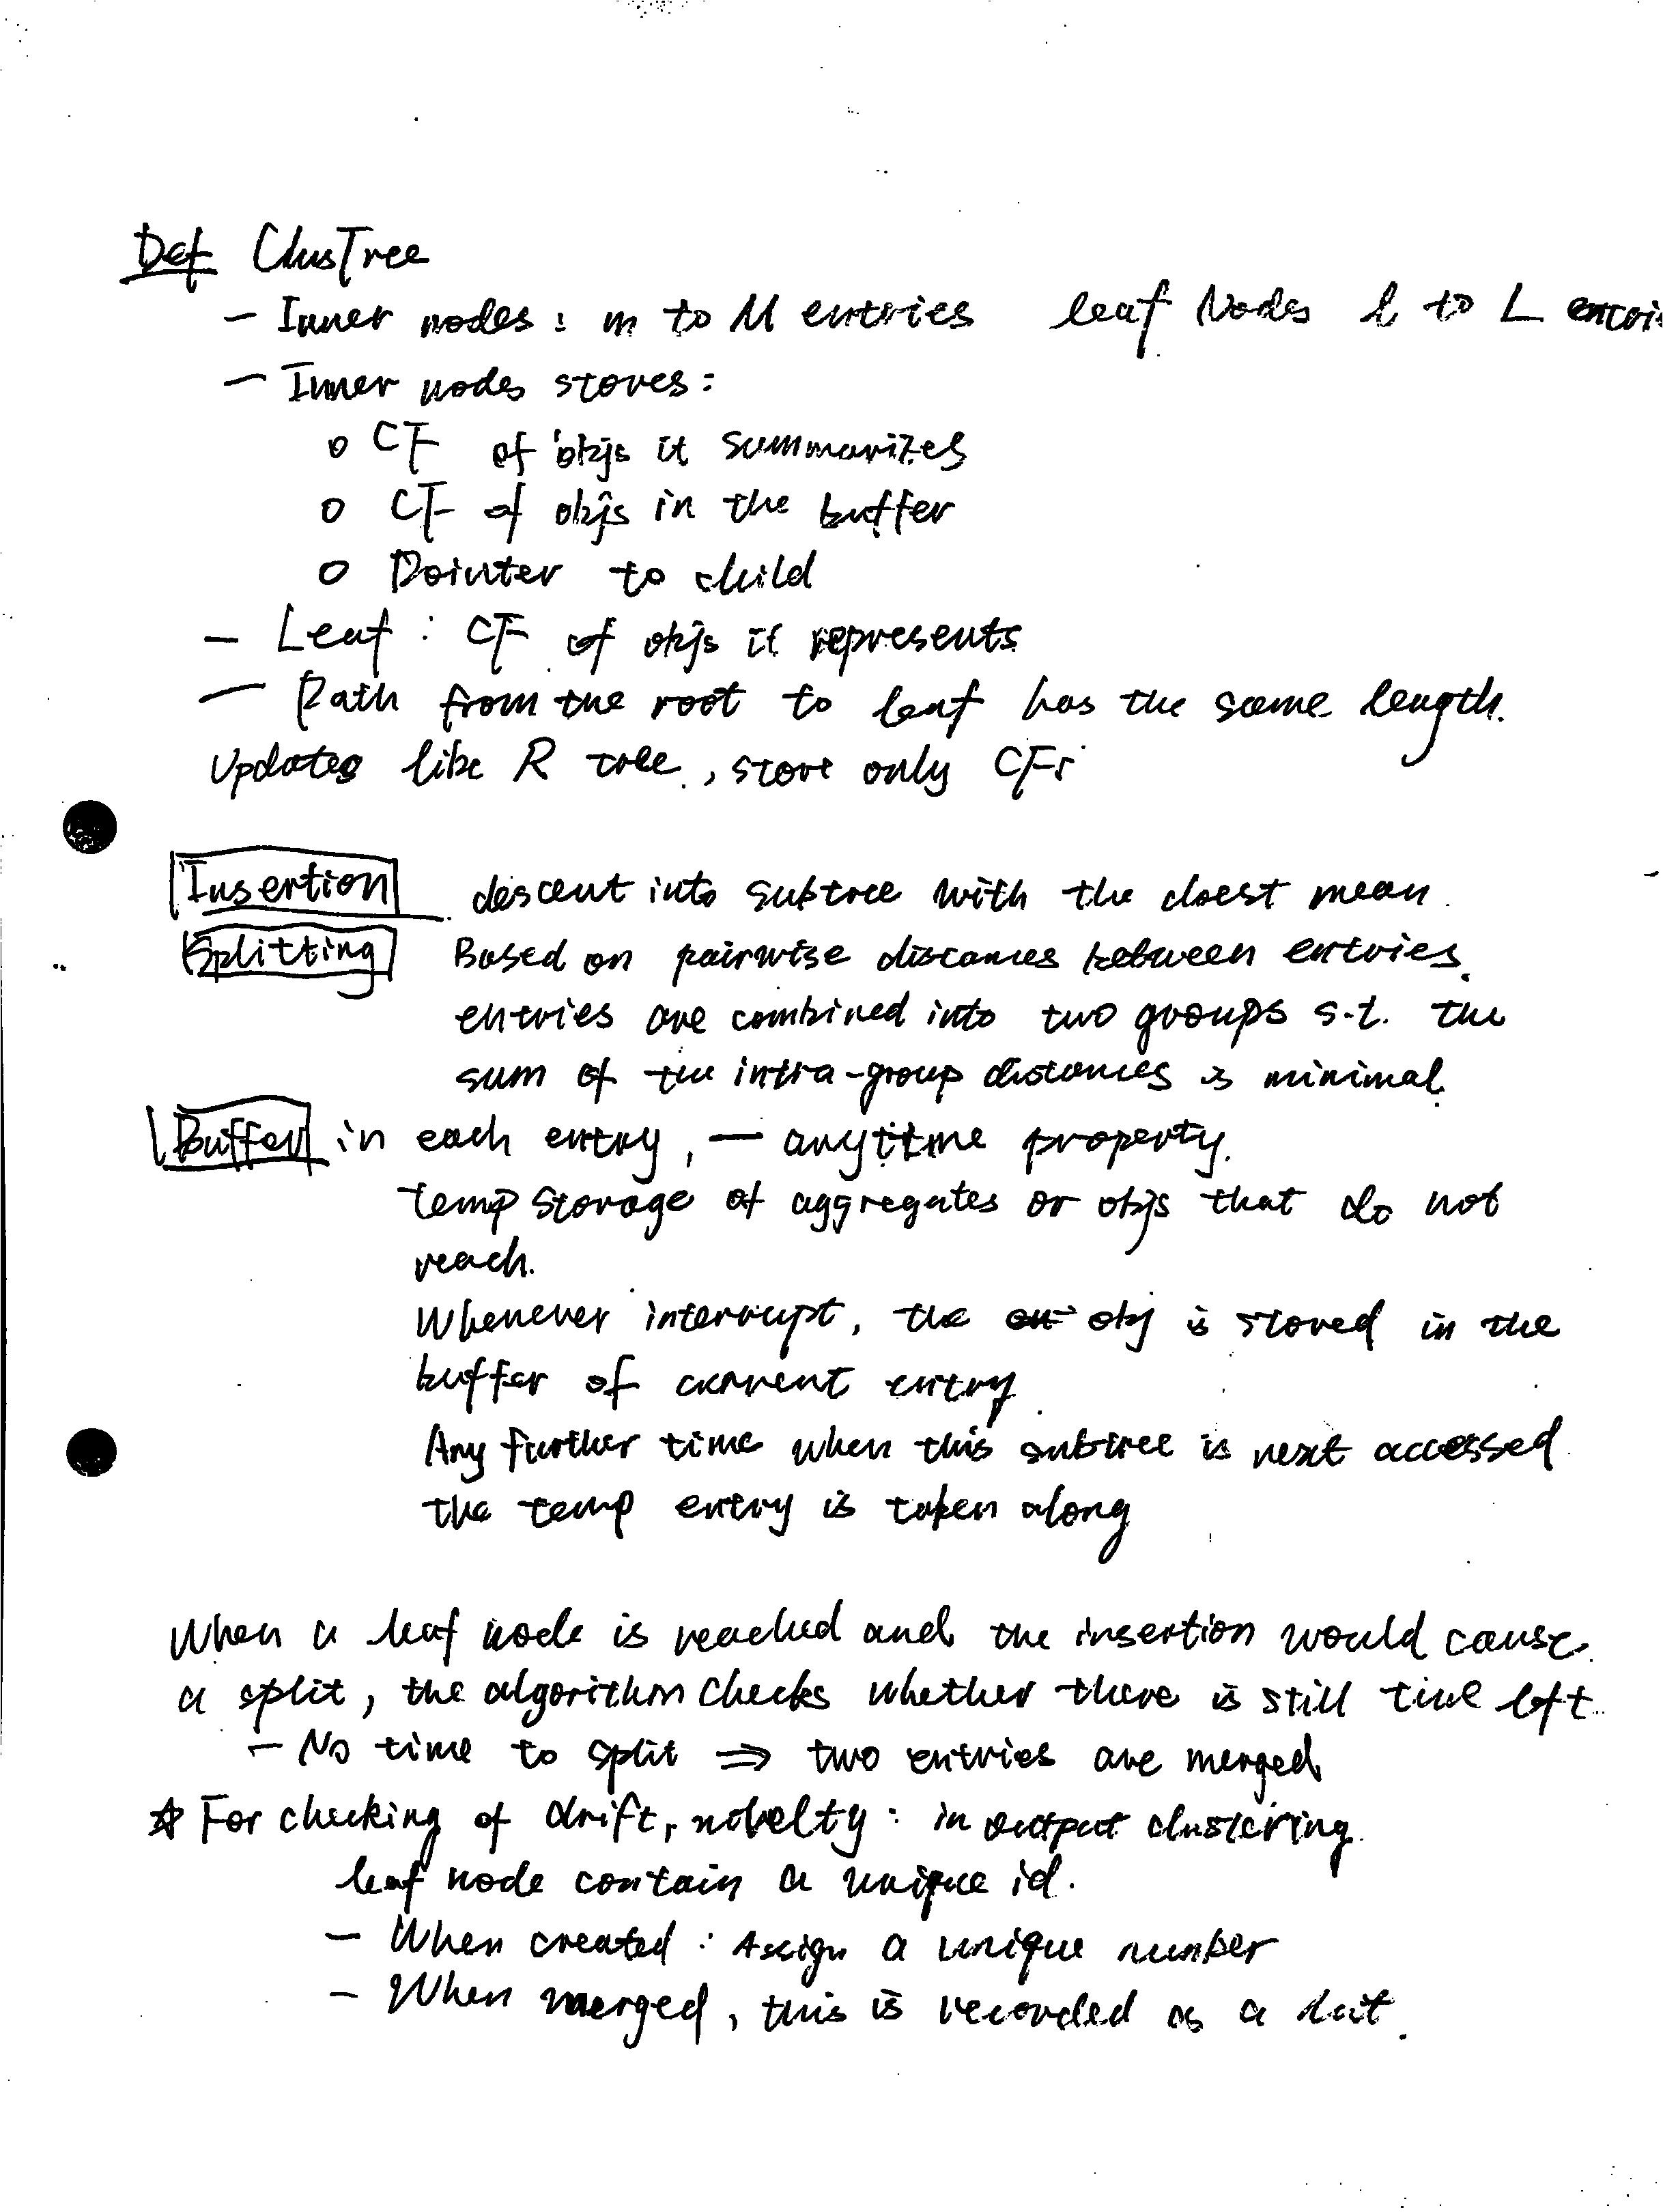 Def ClusTree
- Inner nodes : m to M entries leaf Nodes l to L entri
- Inner nodes stores :
o CF of objs it summarizes
o CF of objs in the buffer
o Pointer to child
- Leaf : CF of objs it represents
- Path from the root to leaf has the same length.
Updates like R tree, store only CFs
Insertion descent into subtree with the cloest mean.
Splitting Based on pairwise distances between entries.
entries are combined into two groups s.t. the
sum of the intra-group distances is minimal.
Buffer in each entry, - anytime property.
temp storage of aggregates or objs that do not
reach.
Whenever interrupt, the obj is stored in the
buffer of current entry.
Any further time when this subtree is next accessed
the temp entry is taken along
When a leaf node is reached and the insertion would cause
a split, the algorithm checks whether there is still time left.
- No time to split ⇒ two entries are merged
☆ For checking of drift, novelty : in output clustering.
leaf node contain a unique id.
- When created : Assign a unique number
- When merged, this is recorded as a